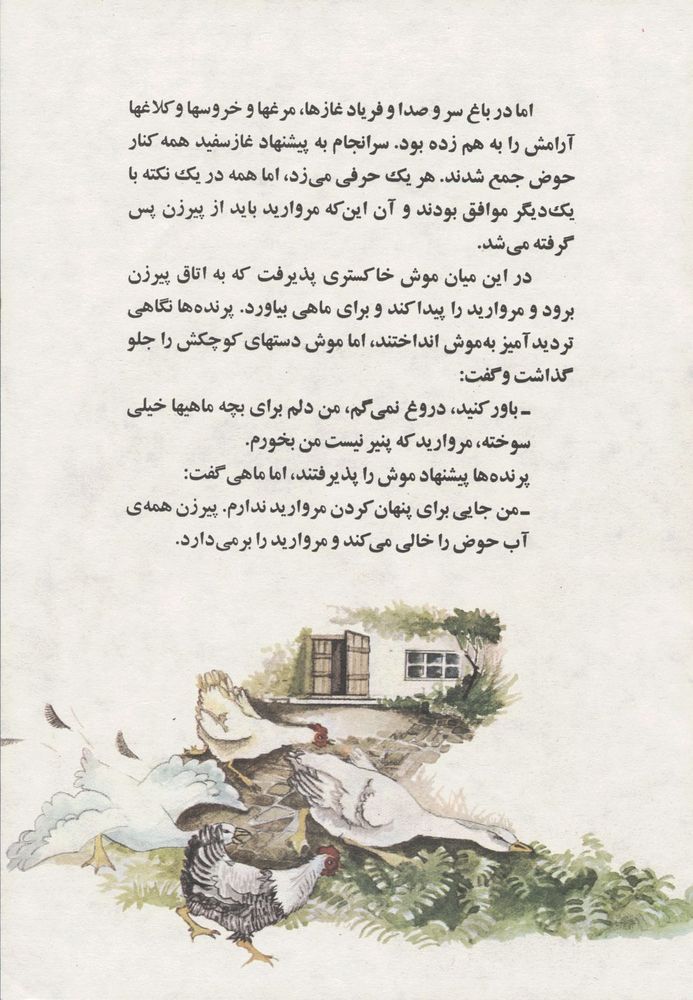 اما در باغ سر و صدا و فریاد غازها، مرغها و خروسها و کلاغها
آرامش را به هم زده بود. سرانجام به پیشنهاد غاز سفید همه کنار
حوض جمع شدند. هر یک حرفی می‌زد، اما همه در یک نکته با
یک‌دیگر موافق بودند و آن این‌که مروارید باید از پیرزن پس
گرفته می‌شد.
در این میان موش خاکستری پذیرفت که به اتاق پیرزن
برود و مروارید را پیدا کند و برای ماهی بیاورد. پرنده‌ها نگاهی
تردیدآمیز به‌موش انداختند، اما موش دستهای کوچکش را جلو
گذاشت و گفت:
ـ باور کنید، دروغ نمی‌گم، من دلم برای بچه ماهیها خیلی
سوخته، مروارید که پنیر نیست من بخورم.
پرنده‌ها پیشنهاد موش را پذیرفتند، اما ماهی گفت:
ـ من جایی برای پنهان کردن مروارید ندارم. پیرزن همه‌ی
آب حوض را خالی می‌کند و مروارید را برمی‌دارد.